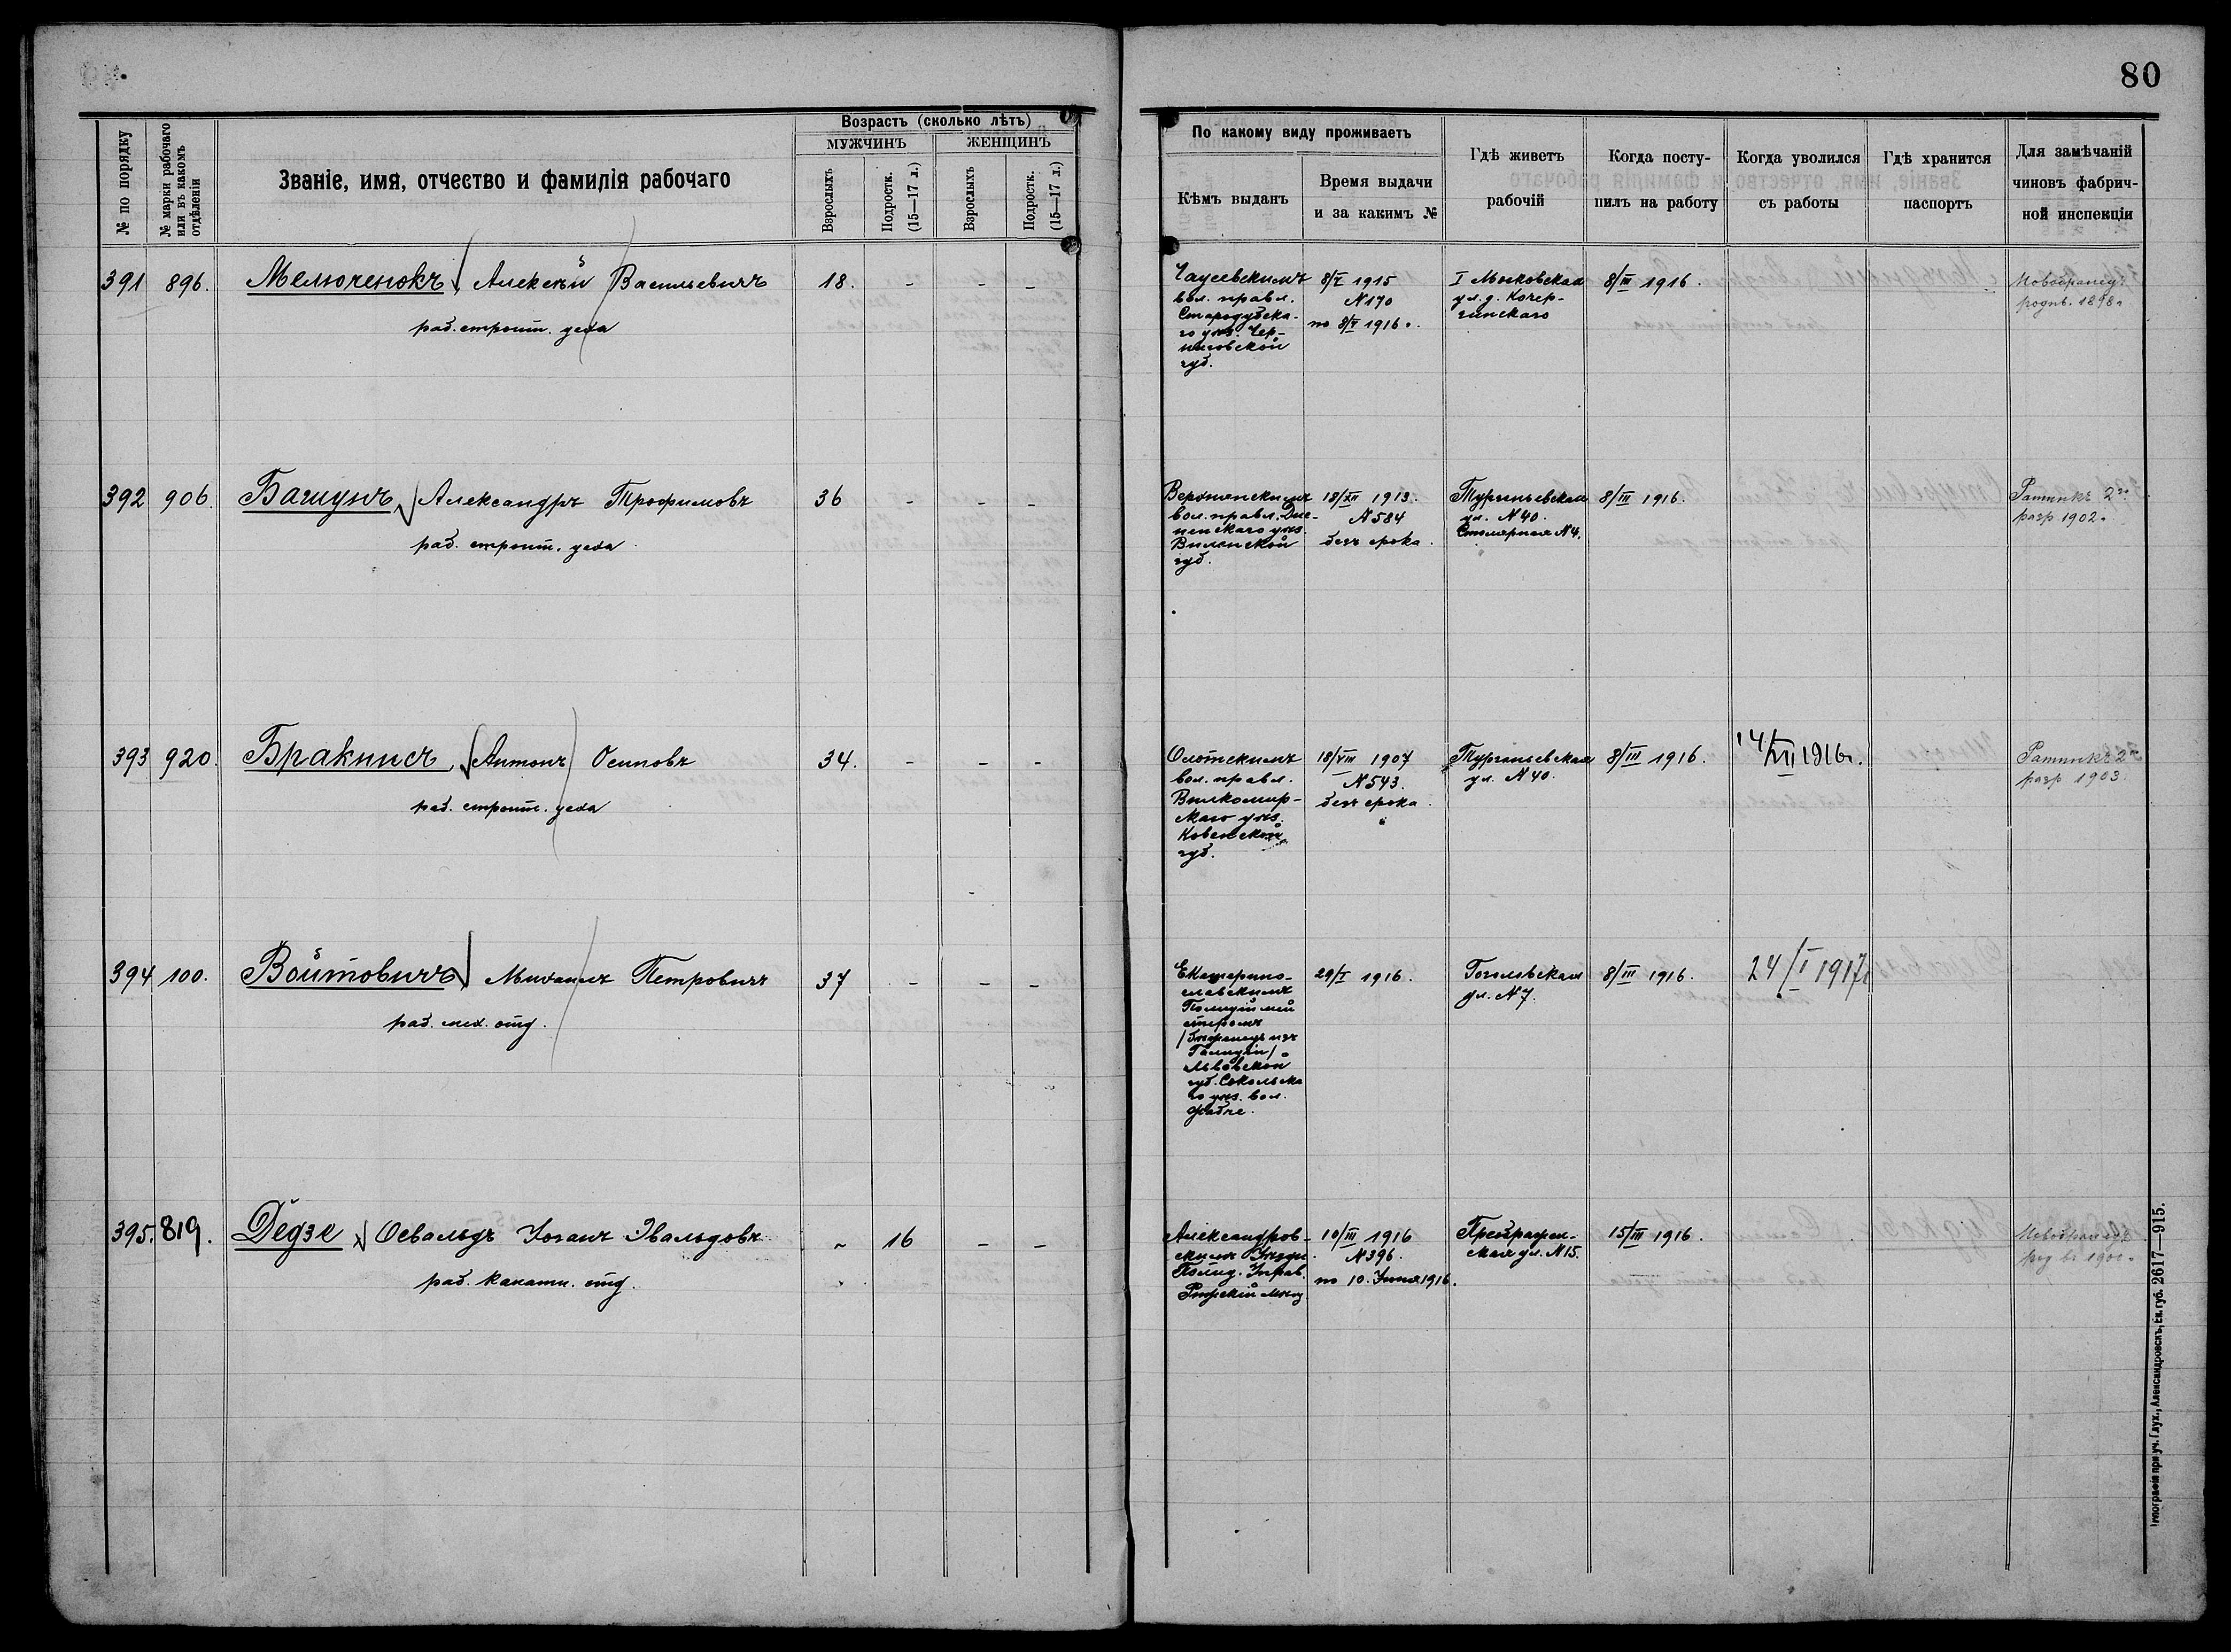 80
Возрастъ (сколько лѣтъ)
МУЖЧИНЪ
ЖЕНЩИНЪ
№ по порядку
№ марки рабочаго или въ какомъ отдѣленіи
Званіе, имя, отчество и фамилія рабочаго
Взрослыхъ
Подростк. (15—17 л.)
Взрослыхъ
Подростк. (15—17 л.)
По какому виду проживаетъ
Кѣмъ выданъ
Время выдачи
и за какимъ №
Гдѣ живетъ
рабочій
Когда посту-
пилъ на работу
Когда уволился
съ работы
Гдѣ хранится
паспортъ
Для замѣчаній
чиновъ фабрич-
ной инспекціи
391 896. Мелюченокъ, Алексѣй Васильевичъ 18. - - -
раб. строит. цеха
Чаусевскимъ
вол. правл.
Стародубска-
го уѣз. Чер-
ниговской
губ.
8/V 1915
N 170
по 8/V 1916 г.
I Московская
ул. д. Кочер-
гинскаго
8/III 1916.
Новобранецъ
родив. 1898 г
392 906. Башунъ, Александръ Трофимовъ 36 - - -
раб. строит. цеха
вол. правл. Дис-
ненскаго уѣз.
Виленской
губ.
18/XII 1913.
N 584
безъ срока.
Тургеневская
ул. N 40.
Столярная N 4.
8/III 1916.
Ратникъ 2го
разр 1902 г
393 920. Бракнисъ, Антонъ Осиповъ 34. - - -
раб. строит. цеха
вол. правл.
Вилкомир-
скаго уѣз.
Ковенской
губ.
18/VIII 1907
N 543.
безъ срока.
Тургеневская
ул. N 40.
8/III 1916.
14/XII 1916 г.
Ратникъ 2го
разр 1903.
394 100. Войтовичъ, Михаилъ Петровичъ 37 - - -
раб. мех. отд.
Екатерино-
славскимъ
Полицiймей
стеромъ
/Бѣженецъ изъ
Галиціи/
Львовской
губ. Сокольска
го уѣз. вол.
29/I 1916.
Гоголевская
ул. N 7.
8/III 1916.
24/I 1917 г
395. 819. Дедзе, Освальдъ Іоганъ Эвальдовъ - 16 - -
раб. канатн. отд.
Александров-
скимъ Уѣздн.
Полиц. Управ.
10/III 1916
N 396.
по 10. Іюня 1916.
ская ул. N 15.
15/III 1916.
Новобранецъ
Типографія при уч. Глух., Александровскъ, Ек. губ. 2617—915.